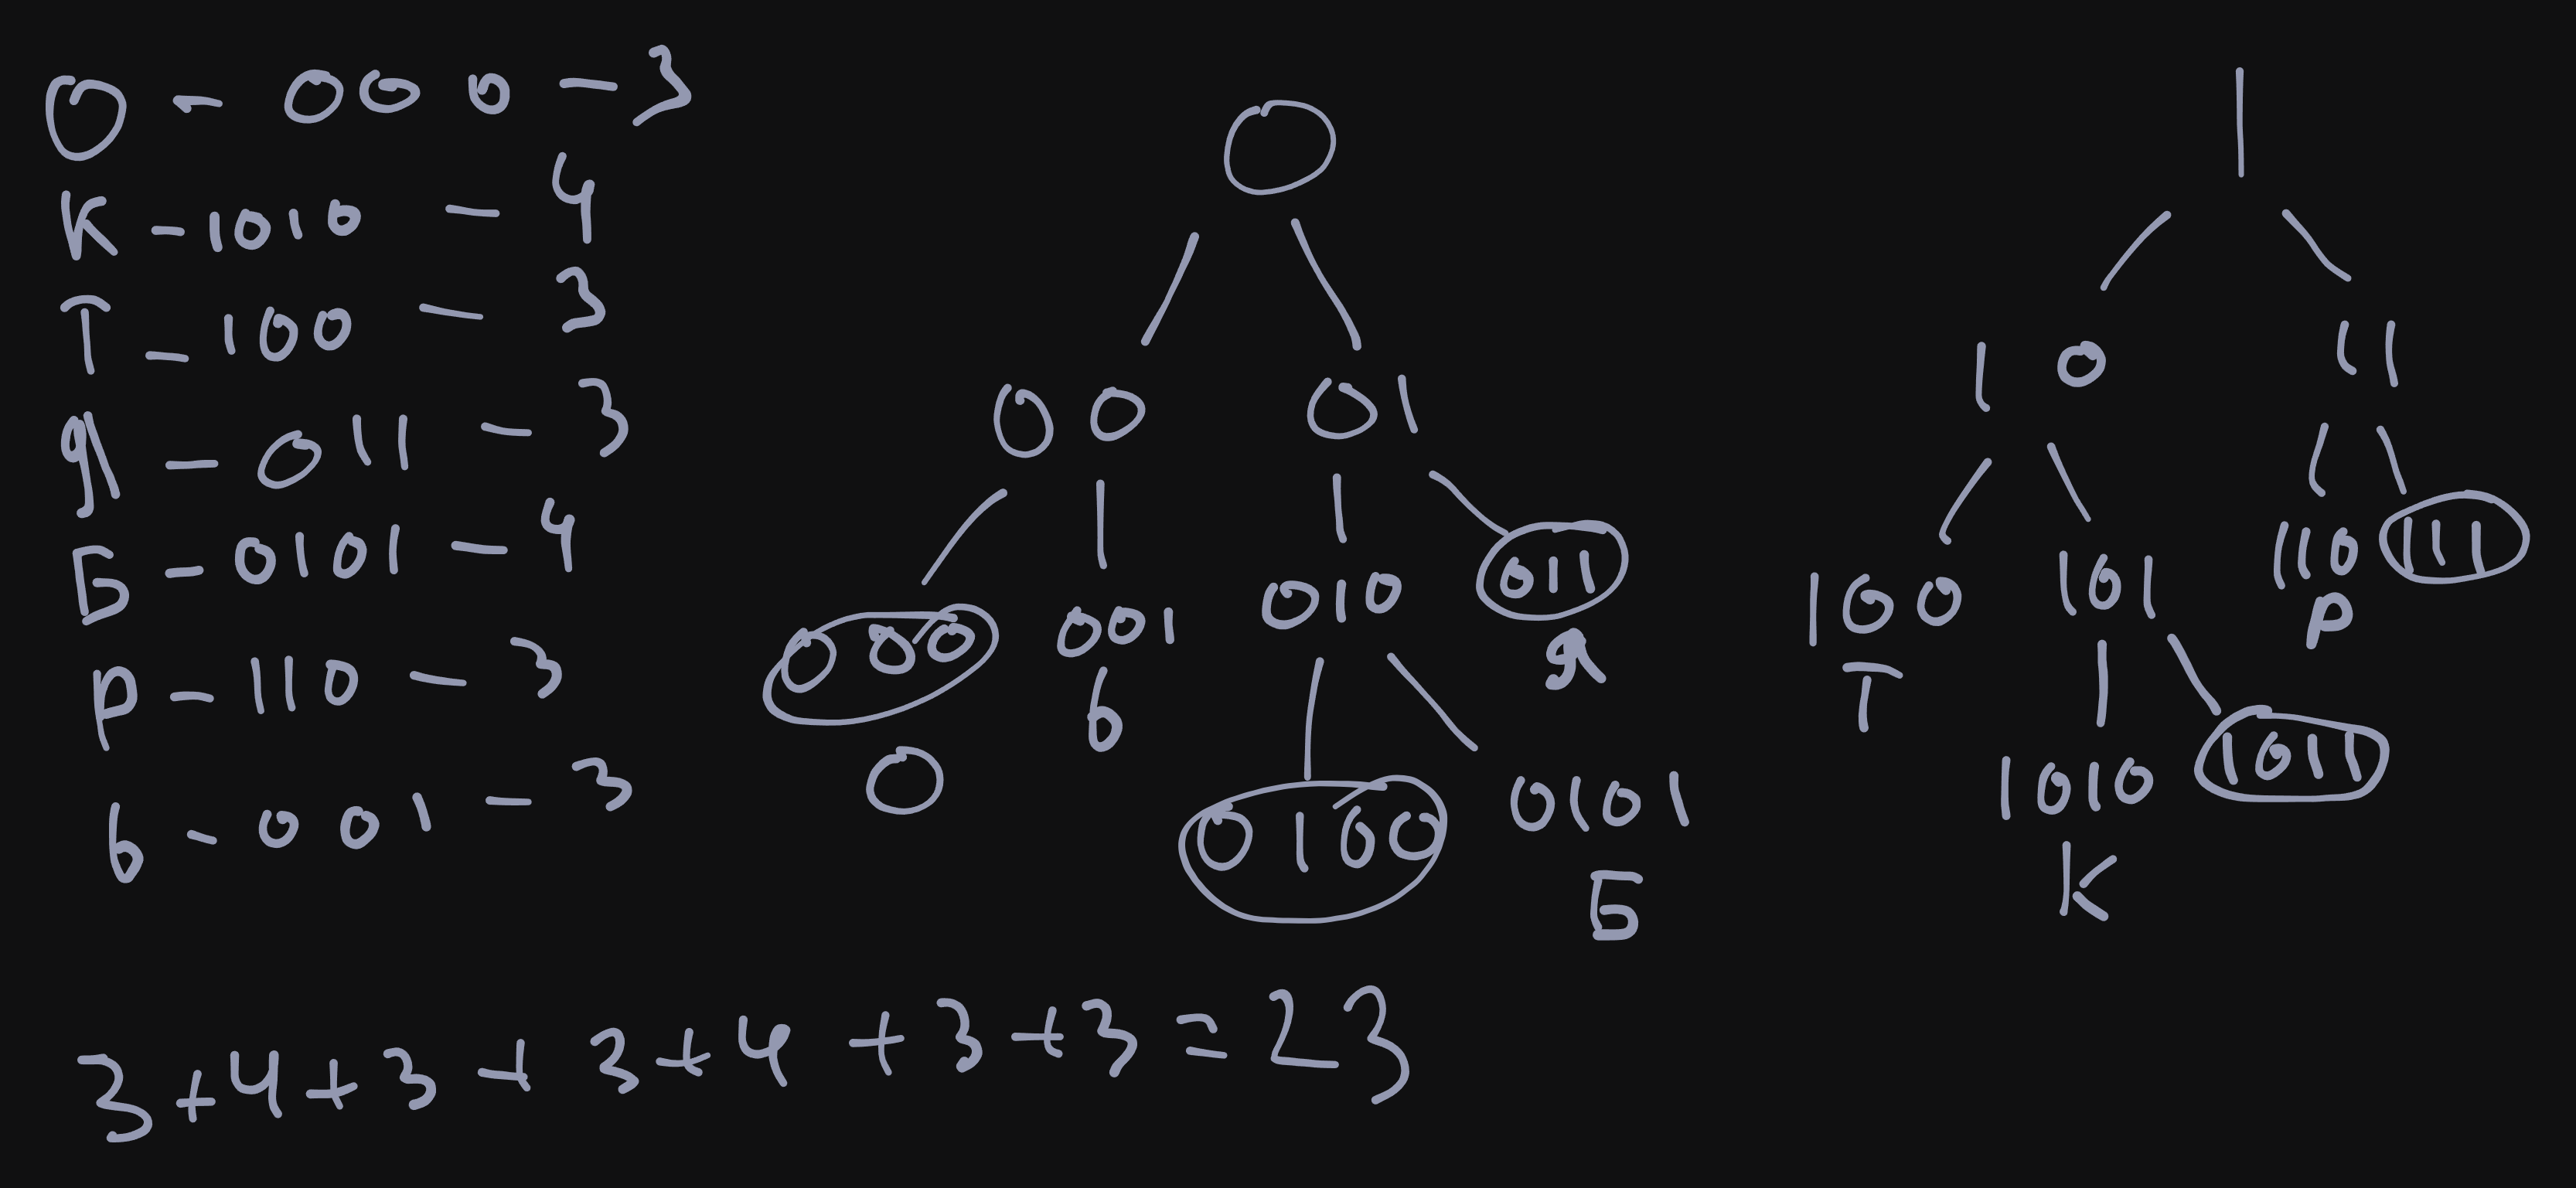 О - 000 - 3
К - 1010 - 4
Т - 100 - 3
Я - 011 - 3
Б - 0101 - 4
Р - 110 - 3
Ь - 001 - 3
0
00 01
000 001 010 011
О Ь Я
0100 0101
Б
1
10 11
100 101 110 111
Т Р
1010 1011
К
3+4+3+3+4+3+3=23